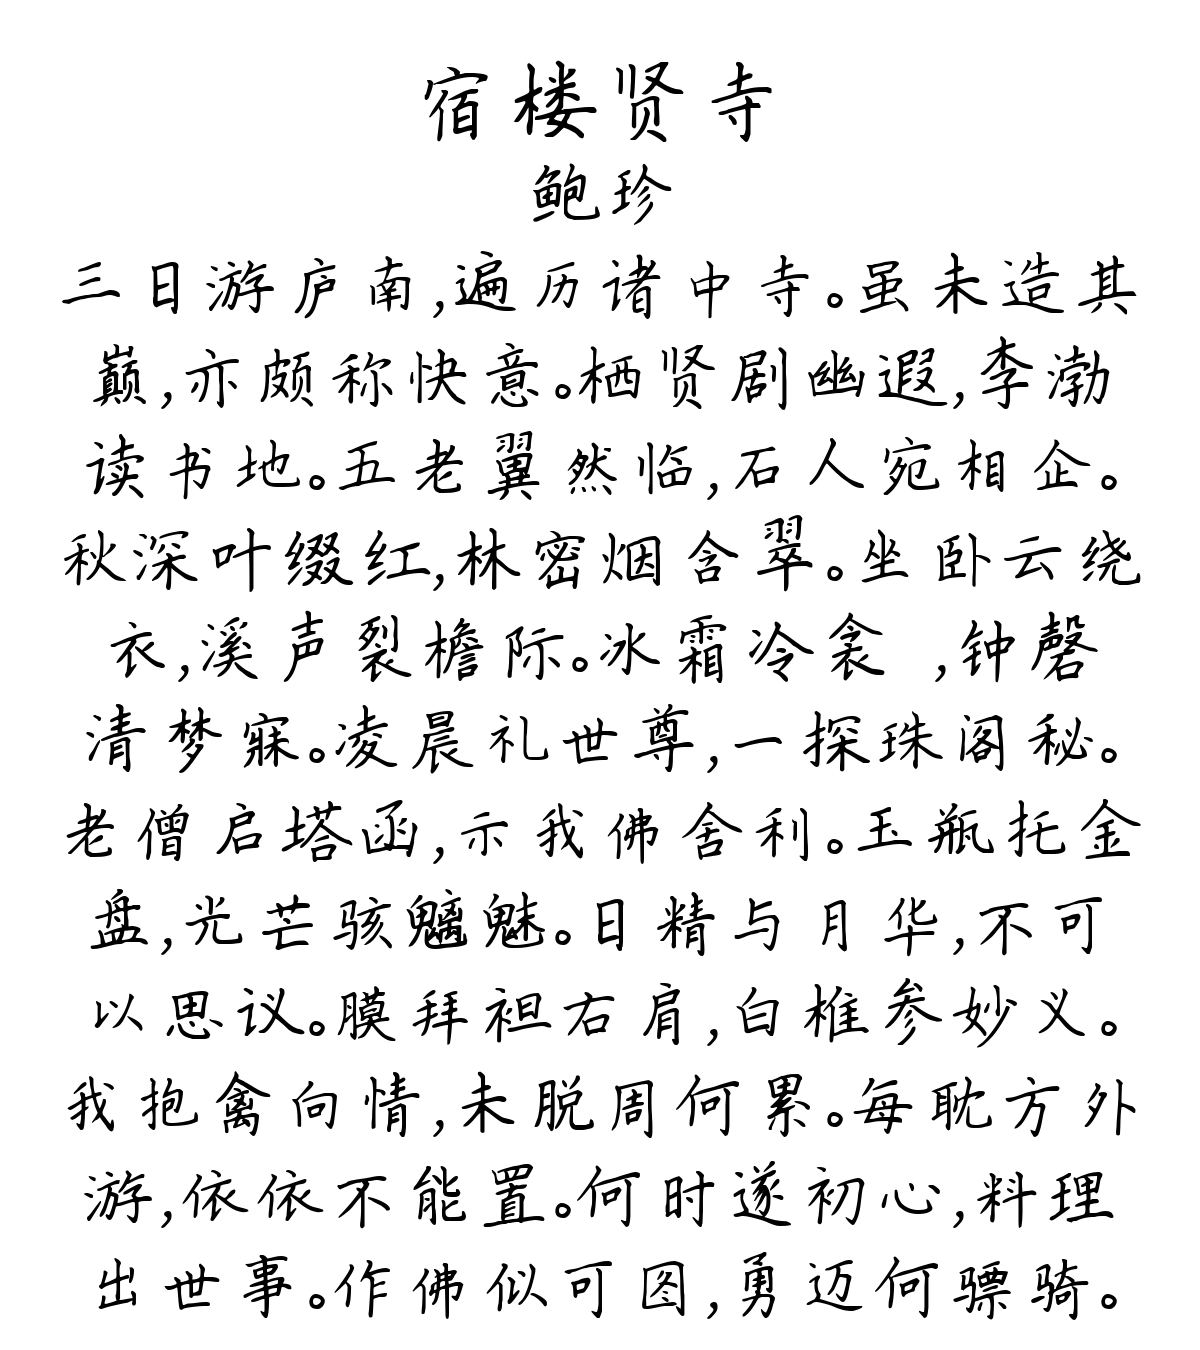 宿楼贤寺
鲍珍
三日游庐南,遍历诸中寺。虽未造其
巅,亦颇称快意。栖贤剧幽遐,李渤
读书地。五老翼然临,石人宛相企。
秋深叶缀红,林密烟含翠。坐卧云绕
衣,溪声裂檐际。冰霜冷衾 ,钟磬
清梦寐。凌晨礼世尊,一探珠阁秘。
老僧启塔函,示我佛舍利。玉瓶托金
盘,光芒骇魑魅。日精与月华,不可
以思议。膜拜袒右肩,白椎参妙义。
我抱禽向情,未脱周何累。每耽方外
游,依依不能置。何时遂初心,料理
出世事。作佛似可图,勇迈何骠骑。